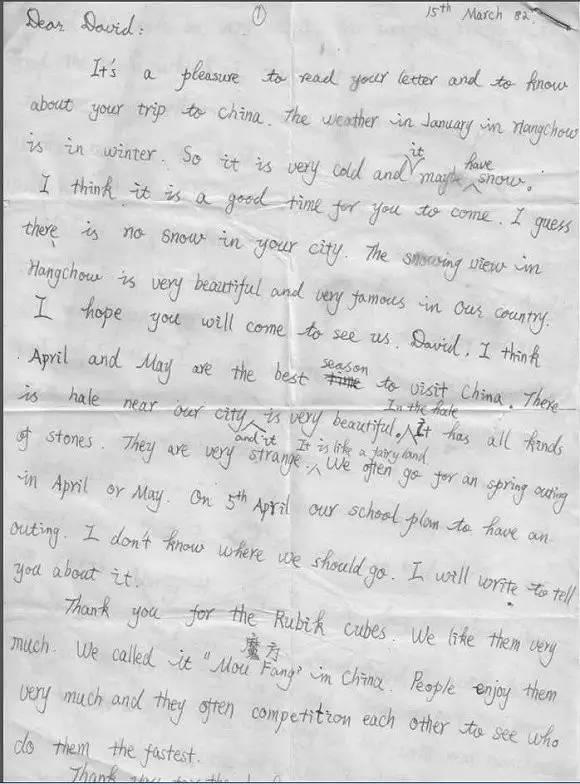 ① 15th March 82
Dear David:
It's a pleasure to read your letter and to know
about your trip to China. The weather in January in Hangchow
is in winter. So it is very cold and it maybe have snow.
I think it is a good time for you to come. I guess
there is no snow in your city. The snowing view in
Hangchow is very beautiful and very famous in our country.
I hope you will come to see us. David, I think
April and May are the best season to visit China. There
is hale near our city and it is very beautiful. In the hale it has all kinds
of stones. They are very strange. It is like a fairyland. We often go for an spring outing
in April or May. On 5th April our school plan to have an
outing. I don't know where we should go. I will write to tell
you about it.
Thank you for the Rubik cubes. We like them very
much. We called it "Mou Fang" 魔方 in China. People enjoy them
very much and they often competition each other to see who
do them the fastest.
Thank you for the